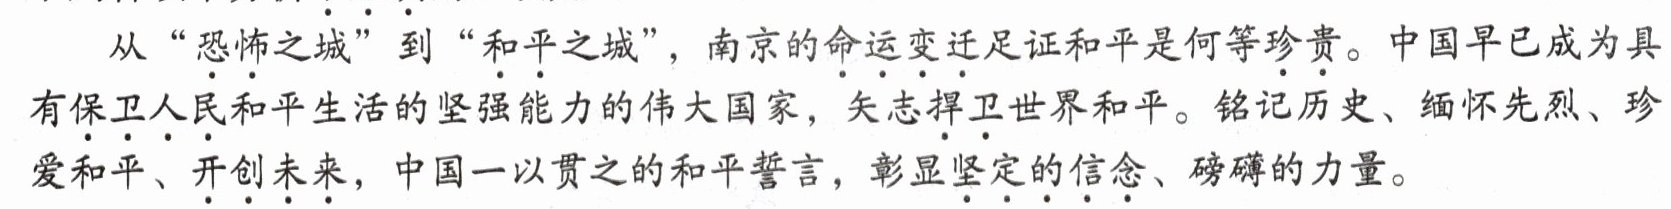 从“恐怖之城”到“和平之城”，南京的命运变迁足证和平是何等珍贵。中国早已成为具
有保卫人民和平生活的坚强能力的伟大国家，矢志捍卫世界和平。铭记历史、缅怀先烈、珍
爱和平、开创未来，中国一以贯之的和平誓言，彰显坚定的信念、磅礴的力量。